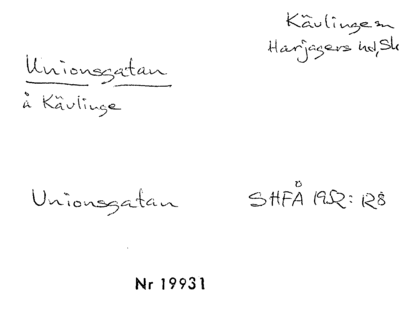 Kävlinge sn
Harjagers hd, Sk
Unionsgatan
å Kävlinge
Unionsgatan SHFÅ 1952: 128
Nr 19931